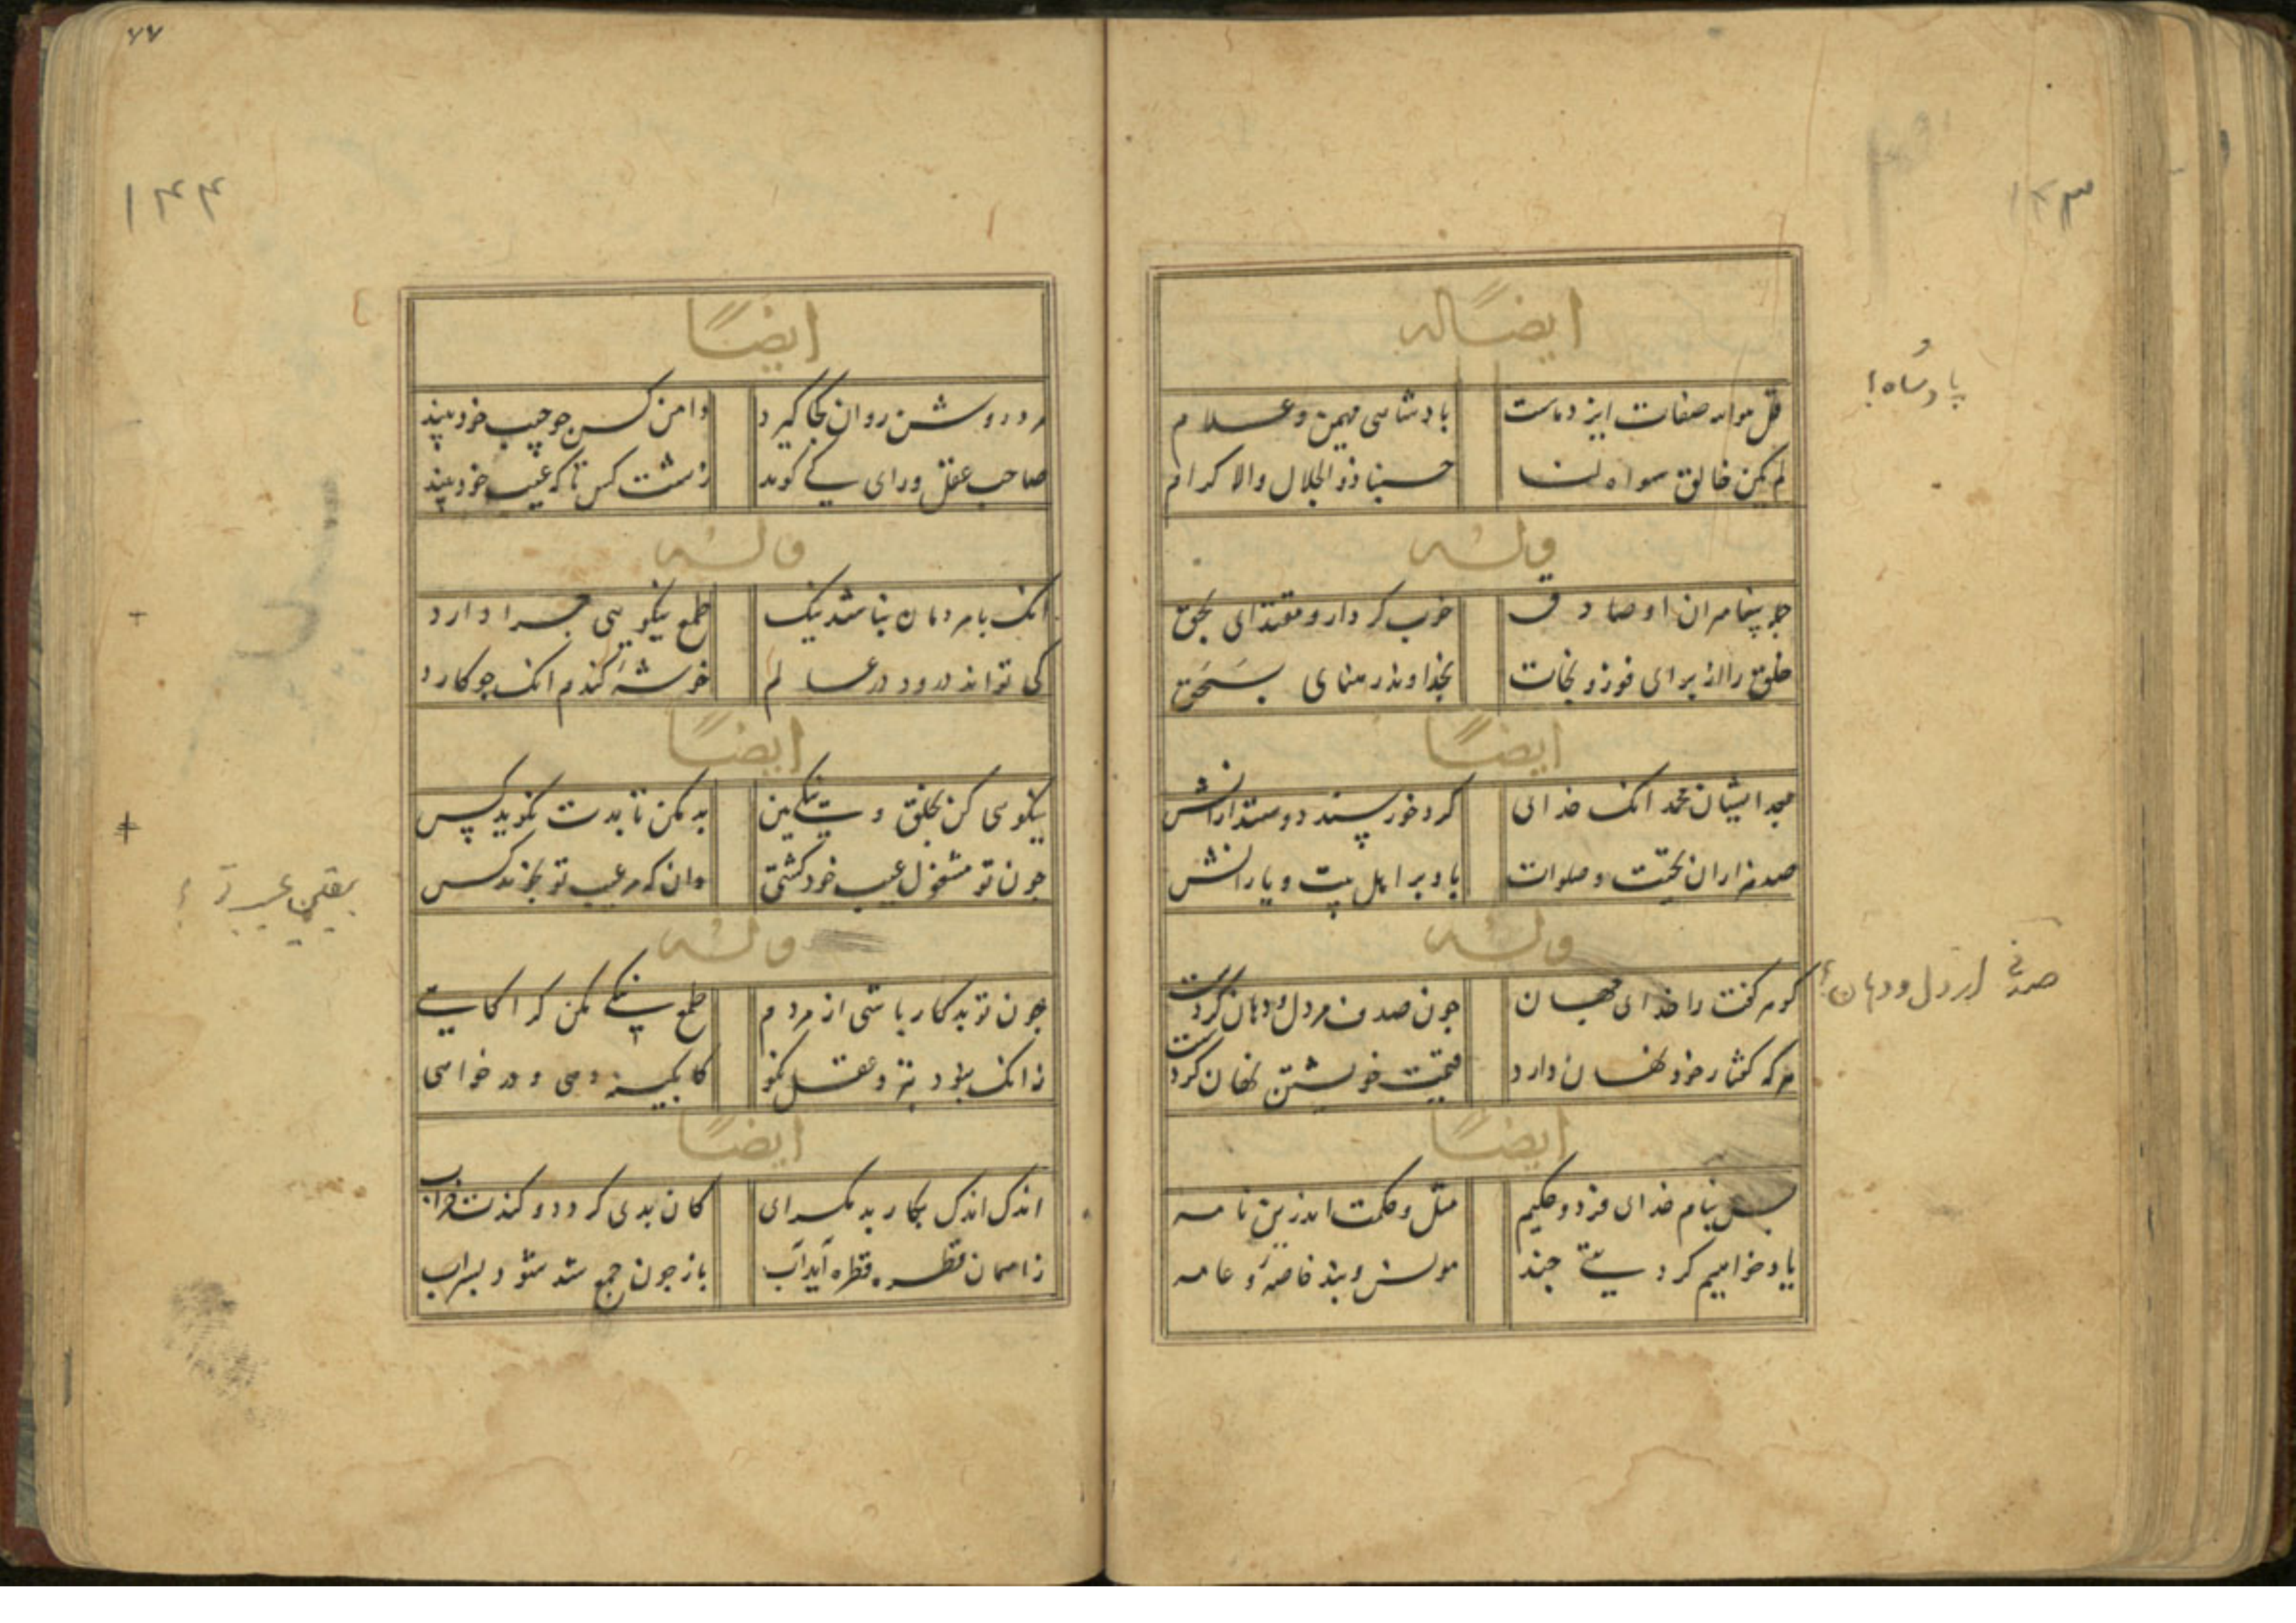 ۱۴۳
ایضاً له
قل هو الله صفات ایزد ماست پادشاهی مهیمن و علام
لم یکن خالق سواه لنا حسبنا ذو الجلال والاکرام
پادشاه
وله
جو پیغامبران او صادق خوب کردار و مقتدای بحق
خلق را از برای فوز و نجات بخدا وند رهنمای بسحق
ایضاً
محمد انک خدای کرد خورسند دوستدارانش
صد هزاران تحیت و صلوات باد بر اهل بیت و یارانش
وله
کوهر کفت را خدای جهان جون صدف هر دل و دهان کردست
هر که کفتار خود نهان دارد قیمت خویشتن نهان کردست
دل و دهان
ایضاً
بس بنام خدای فرد و حکیم مثل و حکمت اندرین نامه
یاد خواهیم کرد بیتی جند مونس و پند خاصه و عامه
۷۷
۱۴۴
ایضاً
مرد روشن روان کجا کیرد دامن کس جو جیب خود بیند
صاحب عقل و رای کی کوید زشت کس تا که عیب خود بیند
وله
انک با مردمان نباشد نیک طمع نیکویی جرا دارد
کی تواند درود در عالم خوشهٔ کندم انک جو کارد
ایضاً
نیکویی کن بخلق و نیکی بین بد مکن تا بدت نکوید کس
جون تو مشغول عیب خود کشتی وان که هر عیب تو نجوید کس
وله
جون تو بد کار باشی از مردم طمع نیکی مکن کر اکاهی
زانک نبود بنزد عقل نکو کابکینه دهی و در خواهی
ایضاً
اندک اندک بکار بد مکرای کان بدی کردد و کندت خراب
زاسمان قطره قطره آید آب باز جون جمع شد شود سیراب